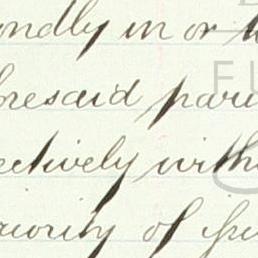 ondly in or
oresaid pari
ectively with
iority of